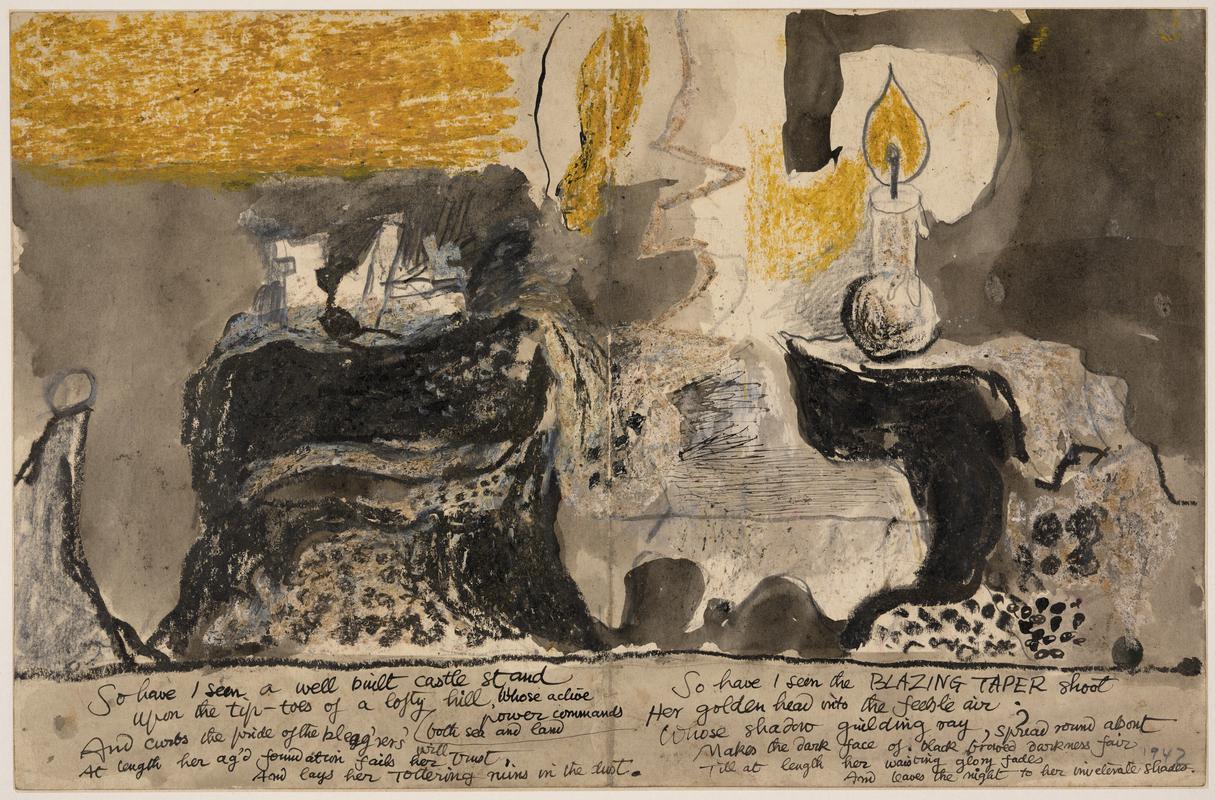 So have I seen a well built castle stand
Upon the tip-toes of a lofty hill, whose active
power commands
(both sea and land
And curbs the pride of the
will
At length her ag'd foundation fails her trust,
And lays her tottering ruins in the dust.
So have I seen the BLAZING TAPER shoot
Her golden head into the feeble air.
Whose shadow guilding ray, spread round about
Makes the dark face of black browed darkness fair
Till at length her wasting glory fades
And leaves the night to her invelerate shades.
1947